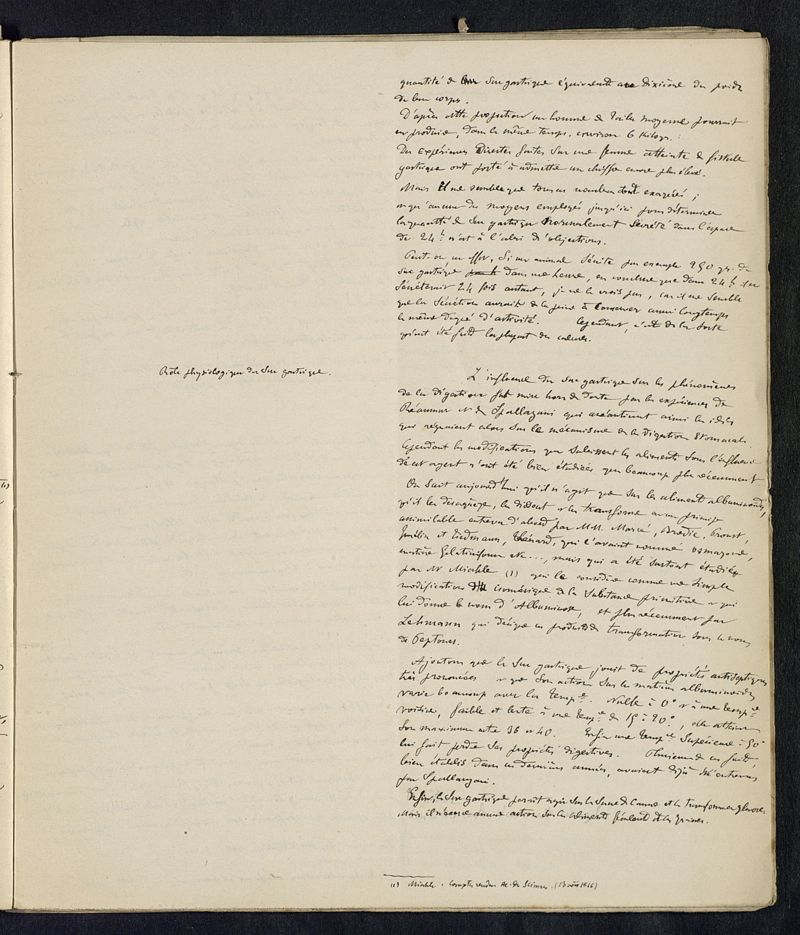 quantité de leur suc gastrique équivalente au dixième du poids
de leur corps.
D'après cette proportion un homme de taille moyenne pourrait
en produire, dans le même temps, environ 6 kilogr.
Des expériences directes faites sur une femme atteinte de fistule
gastrique ont porté à admettre un chiffre encore plus élevé.
Mais il me semble que tous ces nombres sont exagérés ;
et qu'aucun des moyens employés jusqu'ici pour déterminer
la quantité de suc gastrique normalement sécrété dans l'espace
de 24 h. n'est à l'abri d'objections.
Peut-on en effet, si un animal sécrète par exemple 250 gr. de
suc gastrique dans une heure, en conclure que dans 24 h. il en
sécréterait 24 fois autant, je ne le crois pas, car il me semble
que la sécrétion aurait de la peine à conserver aussi longtemps
le même degré d'activité. Cependant, c'est de la sorte
qu'ont été faits la plupart des calculs.
Rôle physiologique du suc gastrique.
L'influence du suc gastrique sur les phénomènes
de la digestion fut mise hors de doute par les expériences de
Réaumur et de Spallanzani qui anéantirent ainsi les idées
qui régnaient alors sur le mécanisme de la digestion stomacale.
Cependant les modifications que subissent les aliments sous l'influence
de cet agent n'ont été bien étudiées que beaucoup plus récemment
On sait aujourd'hui qu'il n'agit que sur les aliments albuminoïdes,
qu'il les désagrège, les dissout et les transforme en un principe
assimilable entrevu d'abord par MM. Marcet, Brodie, Proust,
Gmélin et Tiedmann, Thénard, qui l'avaient nommé osmazome,
matière gélatiniforme etc..., mais qui a été surtout étudiée
par Mr Mialhe (1) qui le considère comme une simple
modification isomérique de la substance primitive et qui
lui donne le nom d'Albuminose, et plus récemment par
Lehmann qui désigne ces produits de transformation sous le nom
de Peptones.
Ajoutons que le suc gastrique jouit de propriétés antiseptiques
très prononcées et que son action sur les matières albuminoïdes
varie beaucoup avec la temp.re Nulle à 0° et à une temp.re
voisine, faible et lente à une temp.re de 15 à 20°, elle atteint
son maximum entre 36 et 40. Enfin une temp.re supérieure à 50°
lui fait perdre ses propriétés digestives. Plusieurs de ces faits,
bien établis dans ces dernières années, avaient déjà été entrevus
par Spallanzani.
Enfin, le suc gastrique paraît agir sur le sucre de canne et le transformer en glucose
Mais il n'exerce aucune action sur les aliments féculents et les graisses.
(1) Mialhe. Comptes rendus Ac. des Sciences. (1846)